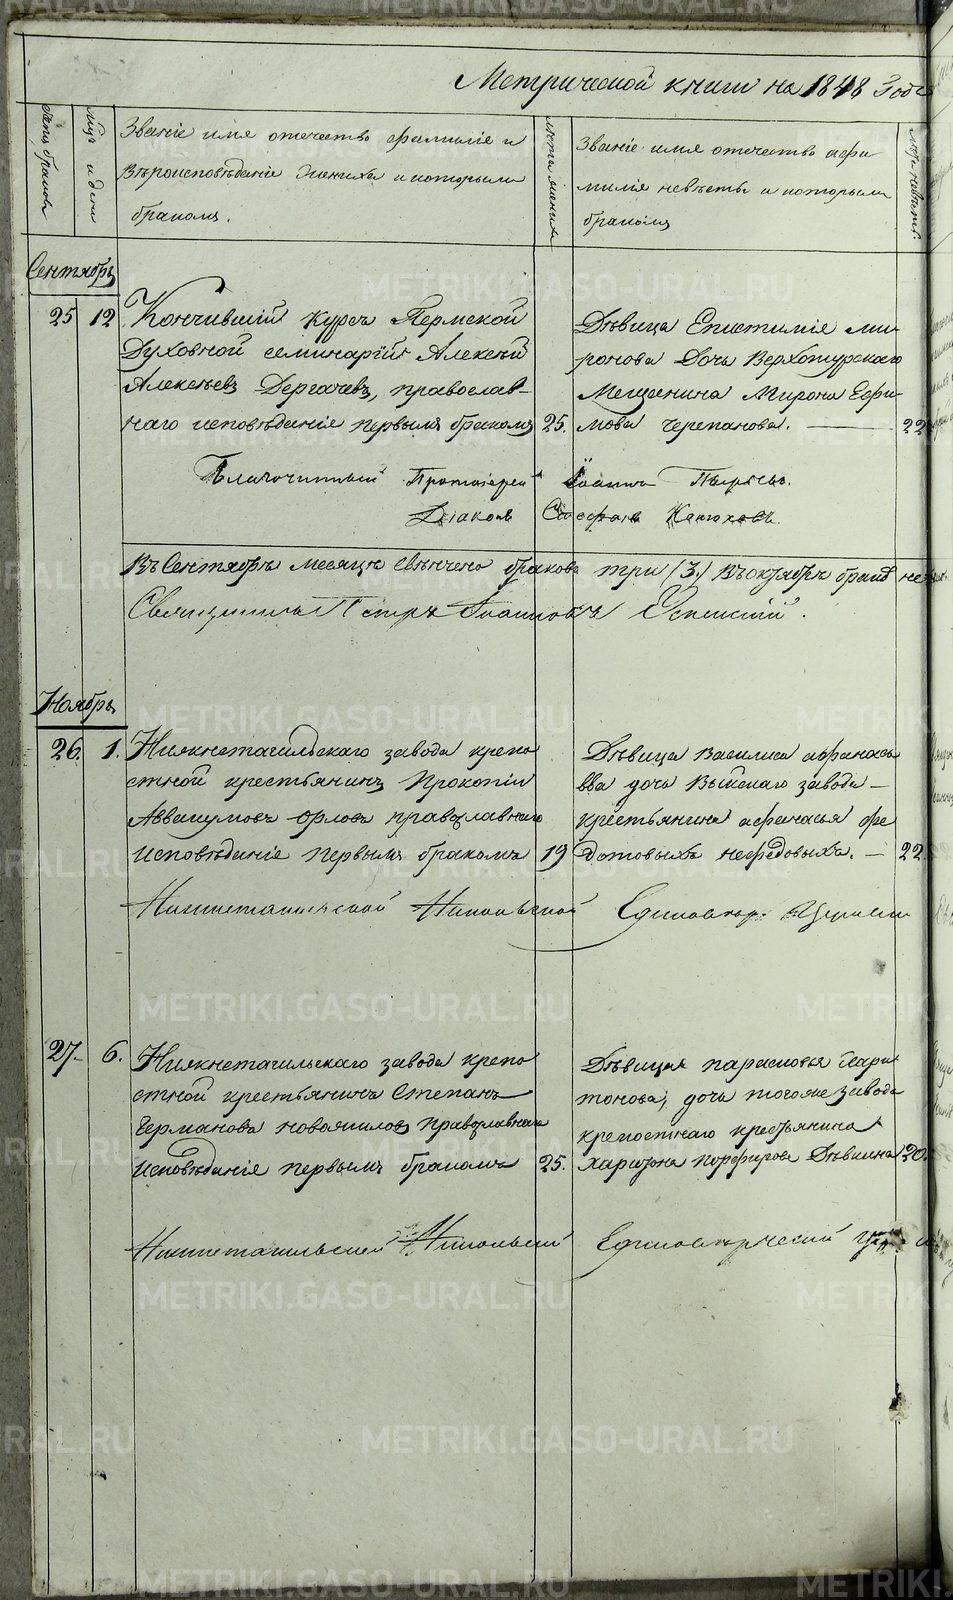 Метрической книги на 1848 Годъ
Счетъ браковъ
Мцъ и день
Званіе имя отечество фамиліе и
вѣроисповѣданіе Жениха и которымъ
бракомъ.
Лѣта жениха
Званіе имя отечество и фа
миліе невѣсты и которымъ
бракомъ
Лѣта невѣсты
Сентябрь
25 12 Кончившій Курсъ Пермской
Духовной семинаріи Алексѣй
Алексѣевъ Дергачевъ, православ-
наго исповѣданія первымъ бракомъ 25.
Дѣвица Епистимія Ми-
ронова Дочь Верхотурскаго
Мещанина Мирона Ефи-
мова Черепанова. 22
Благочинный Протоіерей Іоаннъ
Діаконъ Стефанъ Конюховъ.
Въ Сентябрѣ месяцѣ свѣнчено браковъ три (3.) Въ октябрѣ браковъ
Священникъ Петръ Іоанновъ Успенскій.
Ноябрь
26. 1. Нижнетагильскаго завода крепо
стной крестьянинъ Прокопій
Аввакумовъ Орловъ православнаго
исповѣданіе первымъ бракомъ 19
Дѣвица Василиса афанась
ева дочь Выйскаго завода –
крестьянина афанасья фе
дотовыхъ нефедовыхъ. – 22.
Нижнетагильской Никольской Единовер. Церкви
27. 6. Нижнетагильскаго завода крепо
стной крестьянинъ Степанъ
Германовъ православнаго
исповѣданіе первымъ бракомъ 25.
Дѣвица парасковья Хари
тонова, дочь тогоже завода
крепостнаго крестьянина
харитона порфирова Дѣвкина 20.
Нижнетагильской Никольской Единоверческой
METRIKI.GASO-URAL.RU